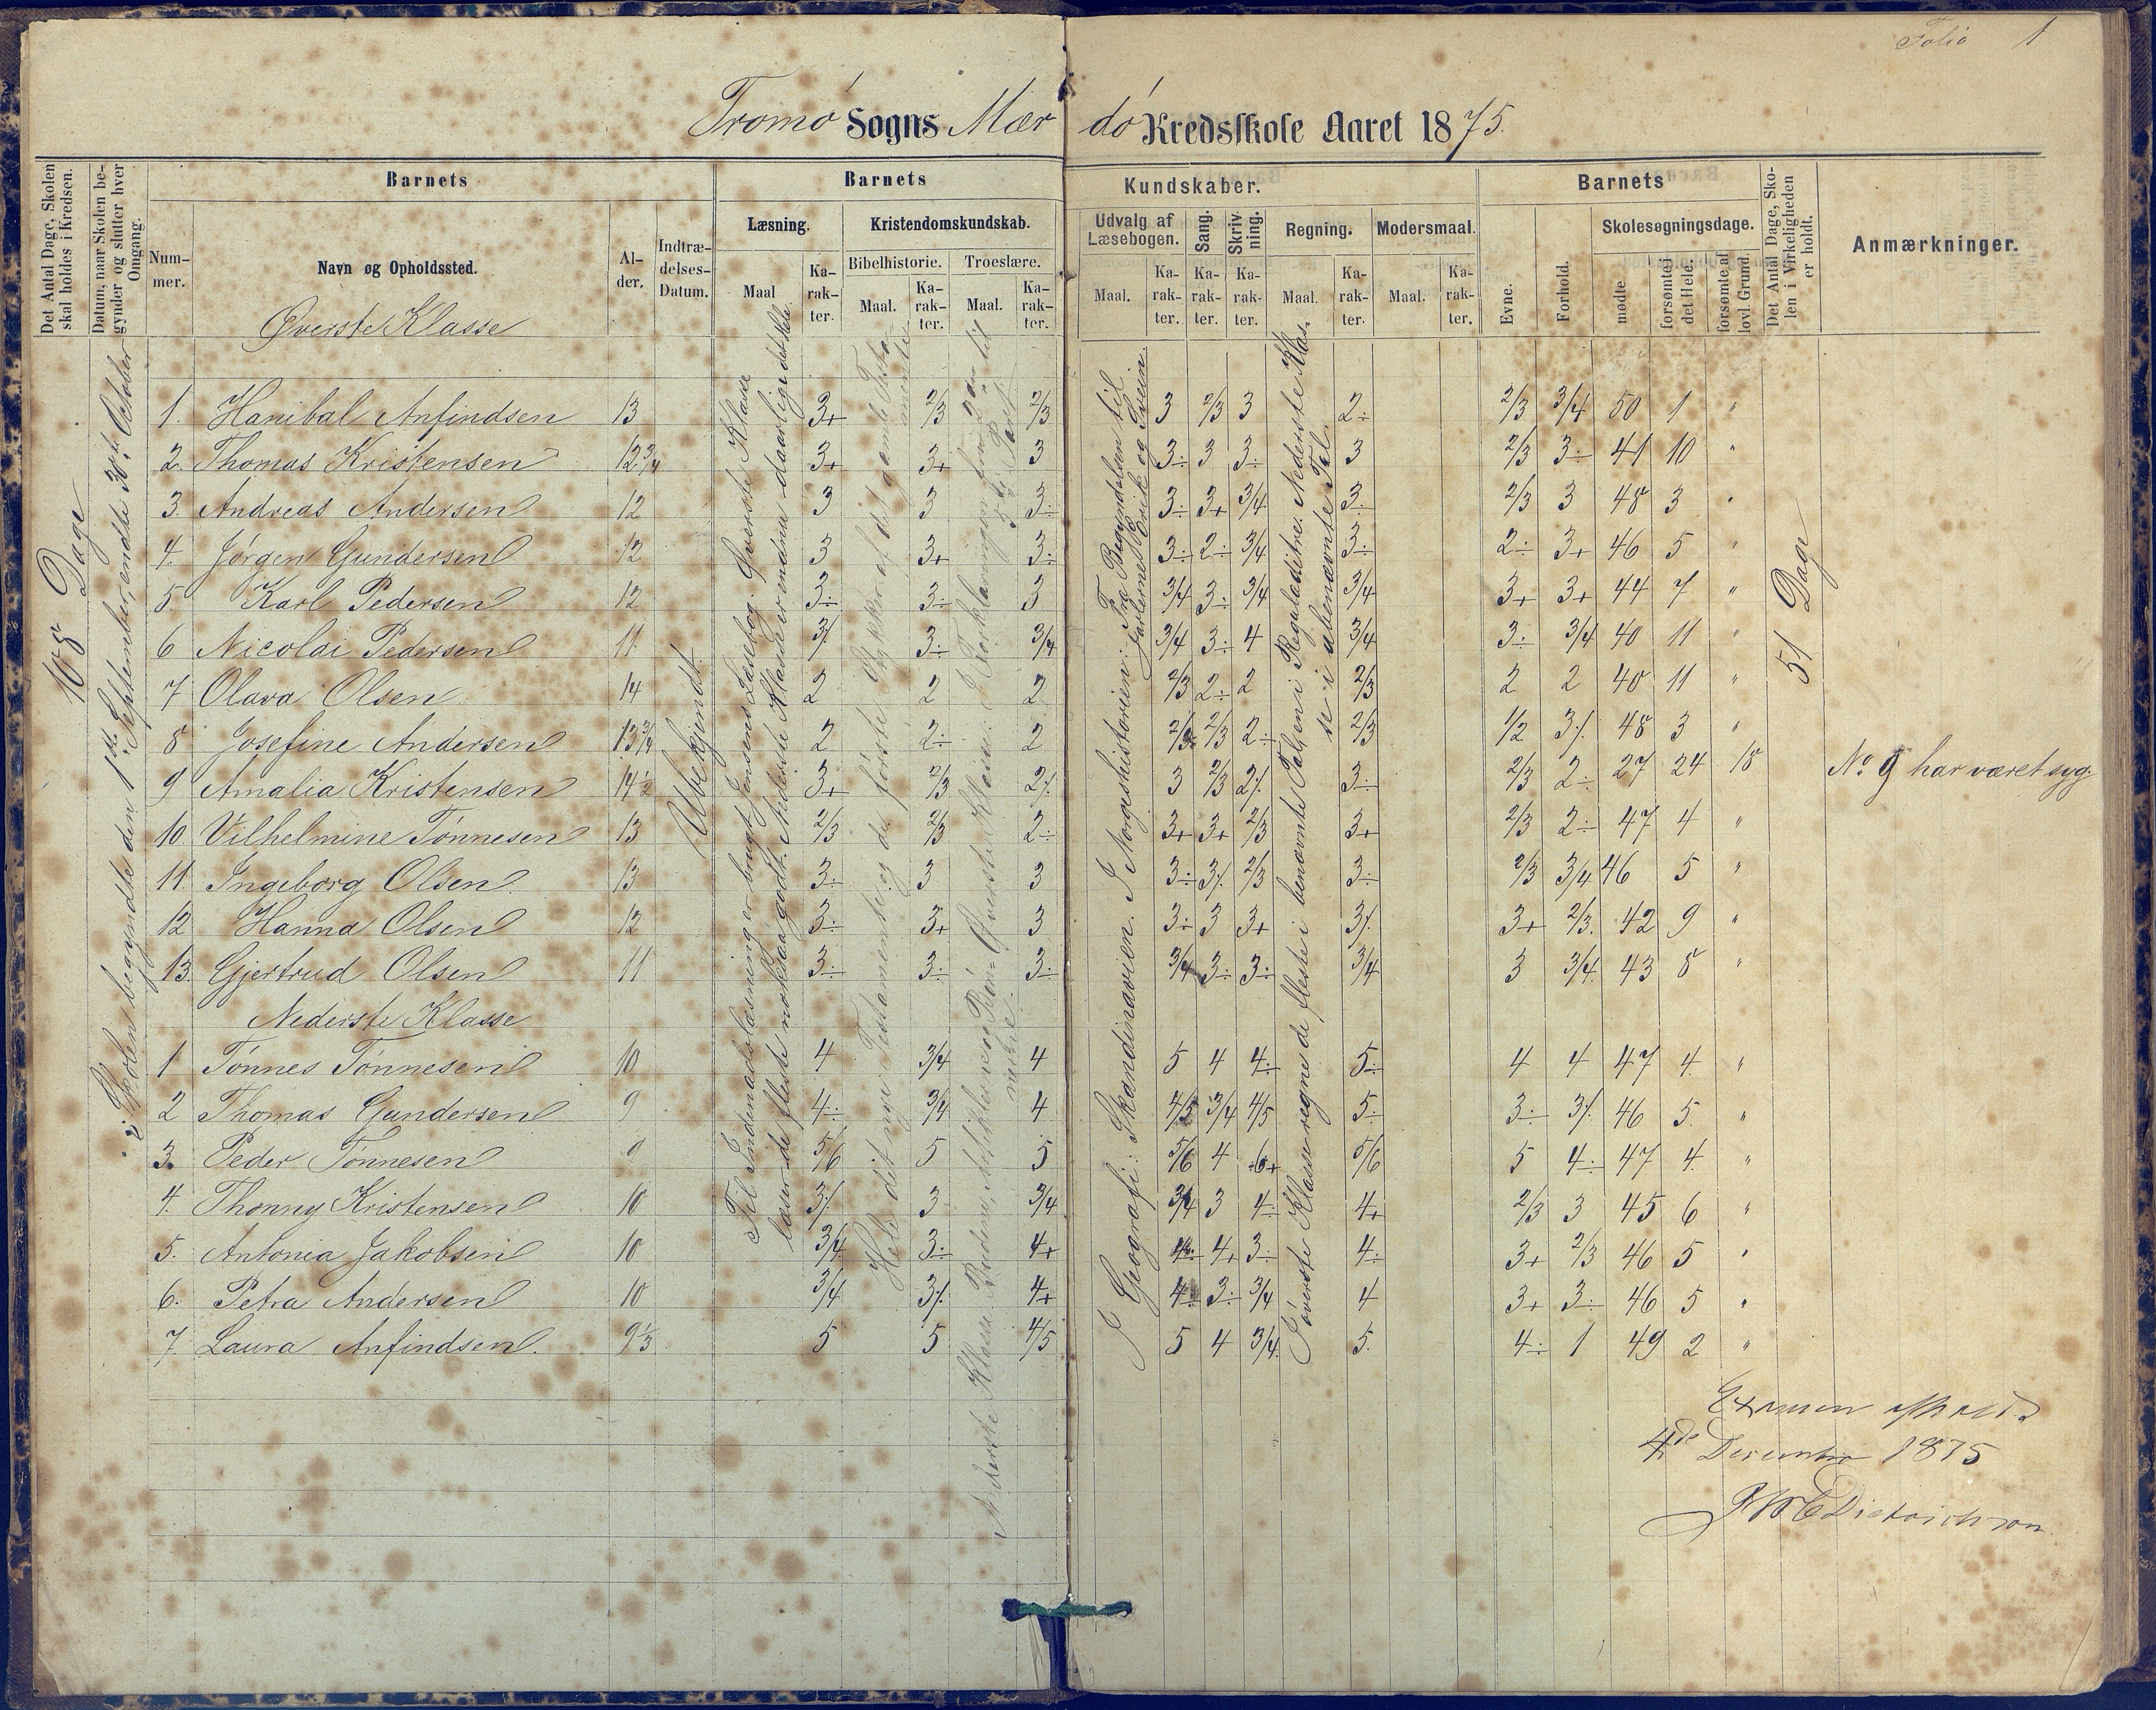 Folio 1
Tromö Sogns Mærdö Kredsskole Aaret 1875.
Det Antal Dage, Skolen skal holdes i Kredsen.
Datum, naar Skolen begynder og slutter hver Omgang.
Barnets
Nummer.
Navn og Opholdssted.
Alder.
Indtrædelses-Datum.
Barnets Kundskaber.
Læsning.
Maal
Karakter.
Kristendomskundskab.
Bibelhistorie.
Maal.
Karakter.
Troeslære.
Maal.
Karakter.
Udvalg af Læsebogen.
Maal.
Karakter.
Sang.
Karakter.
Skrivning.
Karakter.
Regning.
Maal.
Karakter.
Modersmaal.
Maal.
Karakter.
Barnets
Evne.
Forhold.
Skolesøgningsdage.
mødte
forsømte i det Hele.
forsømte af lovl. Grund.
Det Antal Dage, Skolen i Virkeligheden er holdt.
Anmærkninger.
108 Dage
Skolen begyndte den 1ste September, endte 30te October
Ubekjendt.
Til Indenadslæsning er brugt Jensens Læsebog. Øverste Klasse
læser de fleste nok saa godt. Nederste Klasse er endnu daarlig i det Hele.
Hele det nye Testamente og de første Stykker af det gamle Testamente
I Geografi: Skandinavien. I Norgeshistorien: Fra Begyndelsen til
Jarlerne Erik og Svein.
I øverste Klasse regne de fleste i benævnte Tal, en i Reguladitri. Nederste Klasse
i ubenævnte Tal.
51 Dage
Øverste Klasse
1. Hanibal Anfindsen 13 3+ 2/3 2/3 3 2/3 3 2÷ 2/3 3/4 50 1 "
2. Thomas Kristensen 12 3/4 3+ 3+ 3 3÷ 3 3÷ 3 2/3 3÷ 41 10 "
3. Andreas Andersen 12 3 3 3÷ 3÷ 3+ 3/4 3÷ 2/3 3 48 3 "
4. Jörgen Gundersen 12 3 3+ 3÷ 3÷ 2÷ 3/4 3÷ 2÷ 3+ 46 5 "
5 Karl Pedersen 12 3÷ 3÷ 3 3/4 3÷ 3/4 3/4 3+ 3+ 44 7 "
6 Nicolai Pedersen 11 3⁒ 3÷ 3/4 3/4 3÷ 4 3/4 3÷ 3/4 40 11 "
7 Olava Olsen 14 2 2 2 2/3 2÷ 2 2/3 2 2 40 11 "
8 Josefine Andersen 13 3/4 2 2÷ 2 2/3 2/3 2÷ 2/3 1/2 3⁒ 48 3 "
9 Amalia Kristensen 14 1/2 3+ 2/3 2⁒ 3 2/3 2⁒ 3÷ 2/3 2÷ 27 24 18 No 9 har været syg.
10 Vilhelmine Tönnesen 13 2/3 2/3 2÷ 3+ 3+ 2/3 3+ 2/3 2÷ 47 4 "
11. Ingeborg Olsen 13 3÷ 3 3 3÷ 3⁒ 2/3 3÷ 2/3 3/4 46 5 "
12 Hanna Olsen 12 3÷ 3+ 3 3÷ 3 3+ 3⁒ 3+ 2/3 42 9 "
13. Gjertrud Olsen 11 3÷ 3÷ 3÷ 3/4 3÷ 3÷ 3/4 3 3/4 43 8 "
Nederste Klasse
1 Tönnes Tönnesen 10 4 3/4 4 5 4 4÷ 5÷ 4 4 47 4 "
2 Thomas Gundersen 9 4÷ 3/4 4 4/5 3/4 4/5 5÷ 3÷ 3⁒ 46 5 "
3. Peder Tönnesen 9 5/6 5 5 5/6 4 6+ 5/6 5 4÷ 47 4 "
4. Thonny Kristensen 10 3⁒ 3 3/4 3/4 3 4÷ 4+ 2/3 3 45 6 "
5. Antonia Jakobsen 10 3/4 3÷ 4+ 4÷ 4+ 3÷ 4÷ 3+ 2/3 46 5 "
6. Petra Andersen 10 3/4 3⁒ 4+ 4÷ 3÷ 3/4 4 3+ 3÷ 46 5 "
7 Laura Anfindsen. 9 1/3 5 5 4/5 5 4 3/4 5. 4÷ 1 49 2 "
Examen afholdt
4de December 1875
Dietrichson